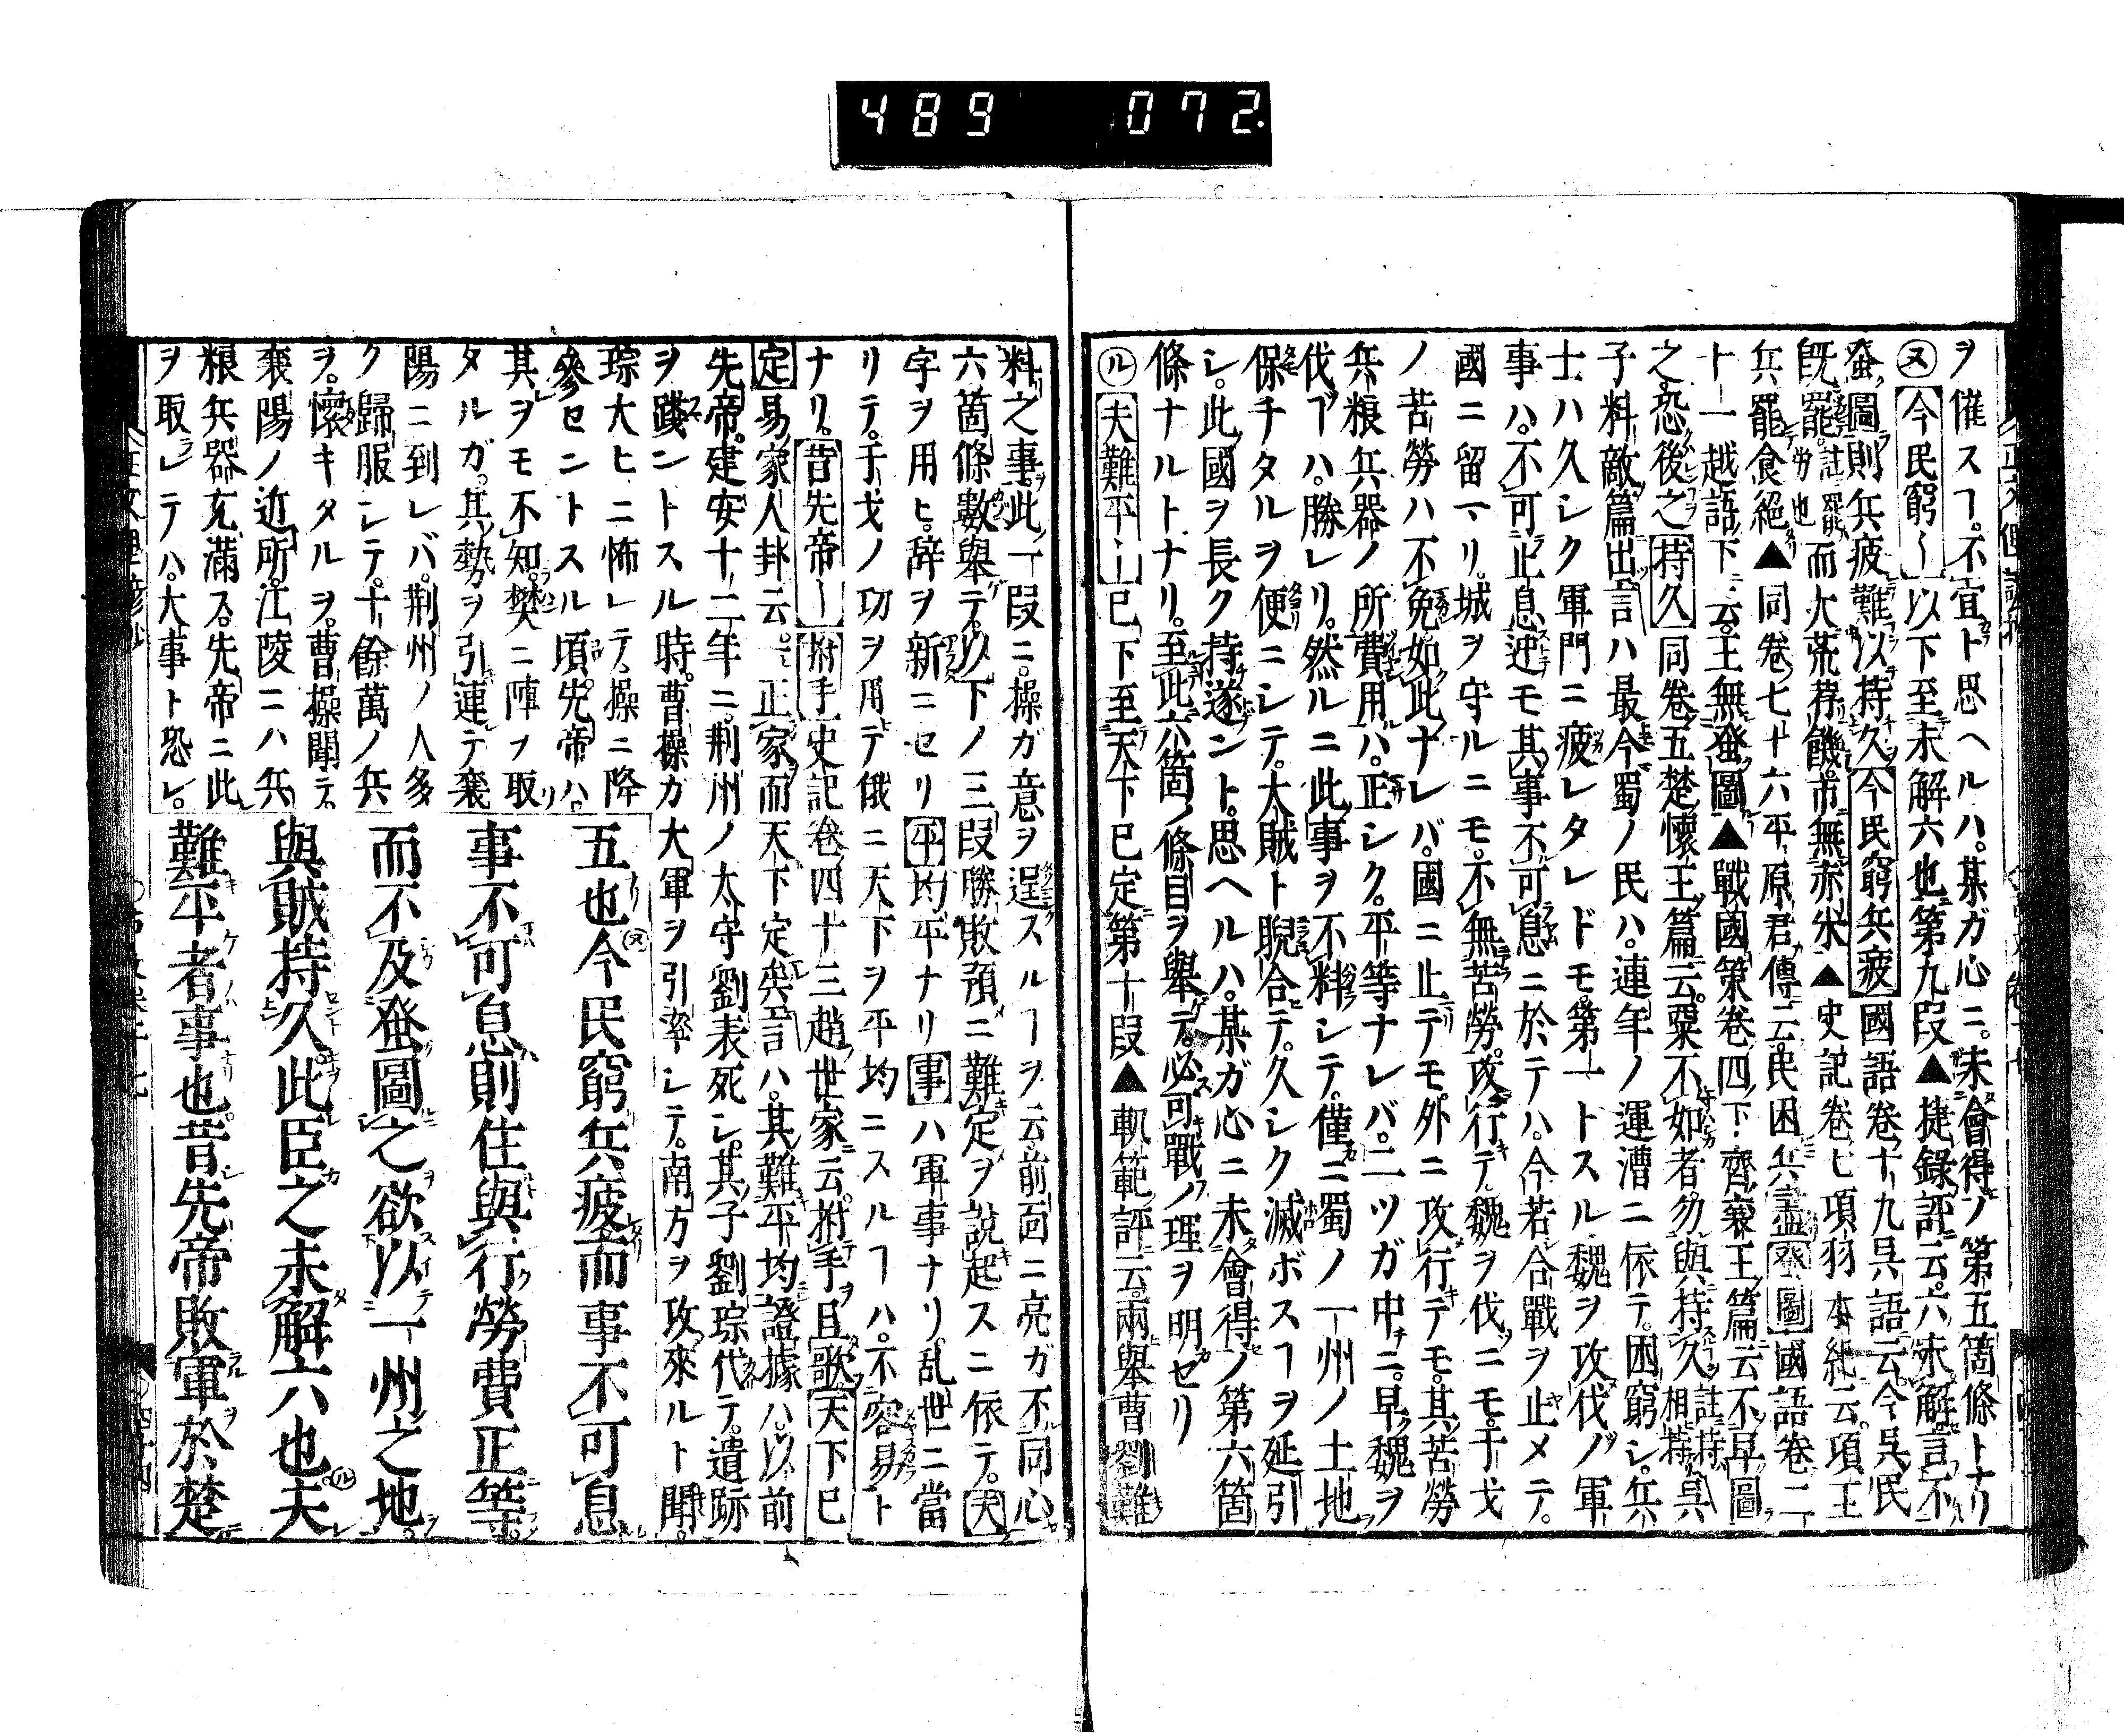 489 072.
ヲ催スヿ。不宜ト思ヘルハ。某ガ心ニ。未會得ノ第五箇條トナリ
㋦今民窮〱以下至未解六也第九段▲捷錄評云。六未解言不
蚤圖則兵疲難以持久今民窮兵疲國語卷十九呉語云今呉民
既罷。註罷勞也而大荒荐饑。市無赤米▲史記卷七項羽本紀云。項王
兵罷食絕▲同卷七十六平原君傳云。民困兵盡蚤圖國語卷二
十一越語下云。王無蚤圖▲戰國策卷四下齊襄王篇云不早圖
之。恐後之持久同卷五楚懷王篇云。粟不如者勿與持久註持相持呉
子料敵篇出言ハ最今蜀ノ民ハ。連年ノ運漕ニ依テ。困窮シ。兵
士ハ久シク軍門ニ疲レタレドモ。第一トスル魏ヲ攻伐ノ軍
事ハ。不可止息迚モ其事不可息ニ於テハ。今若合戰ヲ止メテ。
國ニ留マリ。城ヲ守ルニモ。不無苦勞。攻行テ魏ヲ伐ニモ。于戈
ノ苦勞ハ不免。如此ナレバ。國ニ止テモ。外ニ攻行テモ。其苦勞
兵粮兵器ノ所費用ハ。正シク。平等ナレバ。二ツガ中ニ。早魏ヲ
伐ヿハ。勝レリ。然ルニ此事ヲ不料シテ。僅ニ蜀ノ一州ノ土地
保チタルヲ便ニシテ。大賊ト睨合テ。久シク滅ボスヿヲ延引
シ。此國ヲ長ク持遂ント。思ヘルハ。某ガ心ニ未會得ノ第六箇
條ナルトナリ。至此六箇ノ條目ヲ舉テ。必可戰ノ理ヲ明セリ
㋸夫難平〱已下至天下已定第十段▲軌範評云。兩舉曹劉難
料之事。此一段ニ。操ガ意ヲ逞スルヿヲ云。前面ニ亮ガ不同心
六箇條數舉テ。以下ノ三段勝敗預ニ難定ヲ說起スニ依テ。夫
字ヲ用ヒ。辞ヲ新ニセリ平均平ナリ事ハ軍事ナリ。乱世ニ當
リテ。于戈ノ功ヲ用テ俄ニ天下ヲ平均ニスルヿハ。不容易ト
ナリ。昔先帝〱拊手史記卷四十三趙世家云。拊手且歌天下已
定易家人卦云。正家而天下定矣言ハ。其難平均證據ハ。以前
先帝。建安十二年ニ。荊州ノ太守劉表死シ。其子劉琮代テ。遺跡
ヲ踐ントスル時。曹操カ大軍ヲ引率シテ。南方ヲ攻來ルト聞。
琮大ヒニ怖レテ。操ニ降
參セントスル頃。先帝ハ。
其ヲモ不知。樊ニ陣ヲ取
タルガ。其勢ヲ引連テ襄
陽ニ到レバ。荊州ノ人多
ク歸服シテ。十餘萬ノ兵
ヲ。懷キタルヲ。曹操聞テ。
襄陽ノ近所。江陵ニハ兵
粮兵器充滿ス。先帝ニ此
ヲ取ラレテハ。大事ト恐レ。
五也㋦今民窮兵疲而事不可息
事不可息則住與行勞費正等。
而不及蚤圖之欲以一州之地。
與賊持久。此臣之未解六也㋸夫
難平者事也。昔先帝敗軍於楚